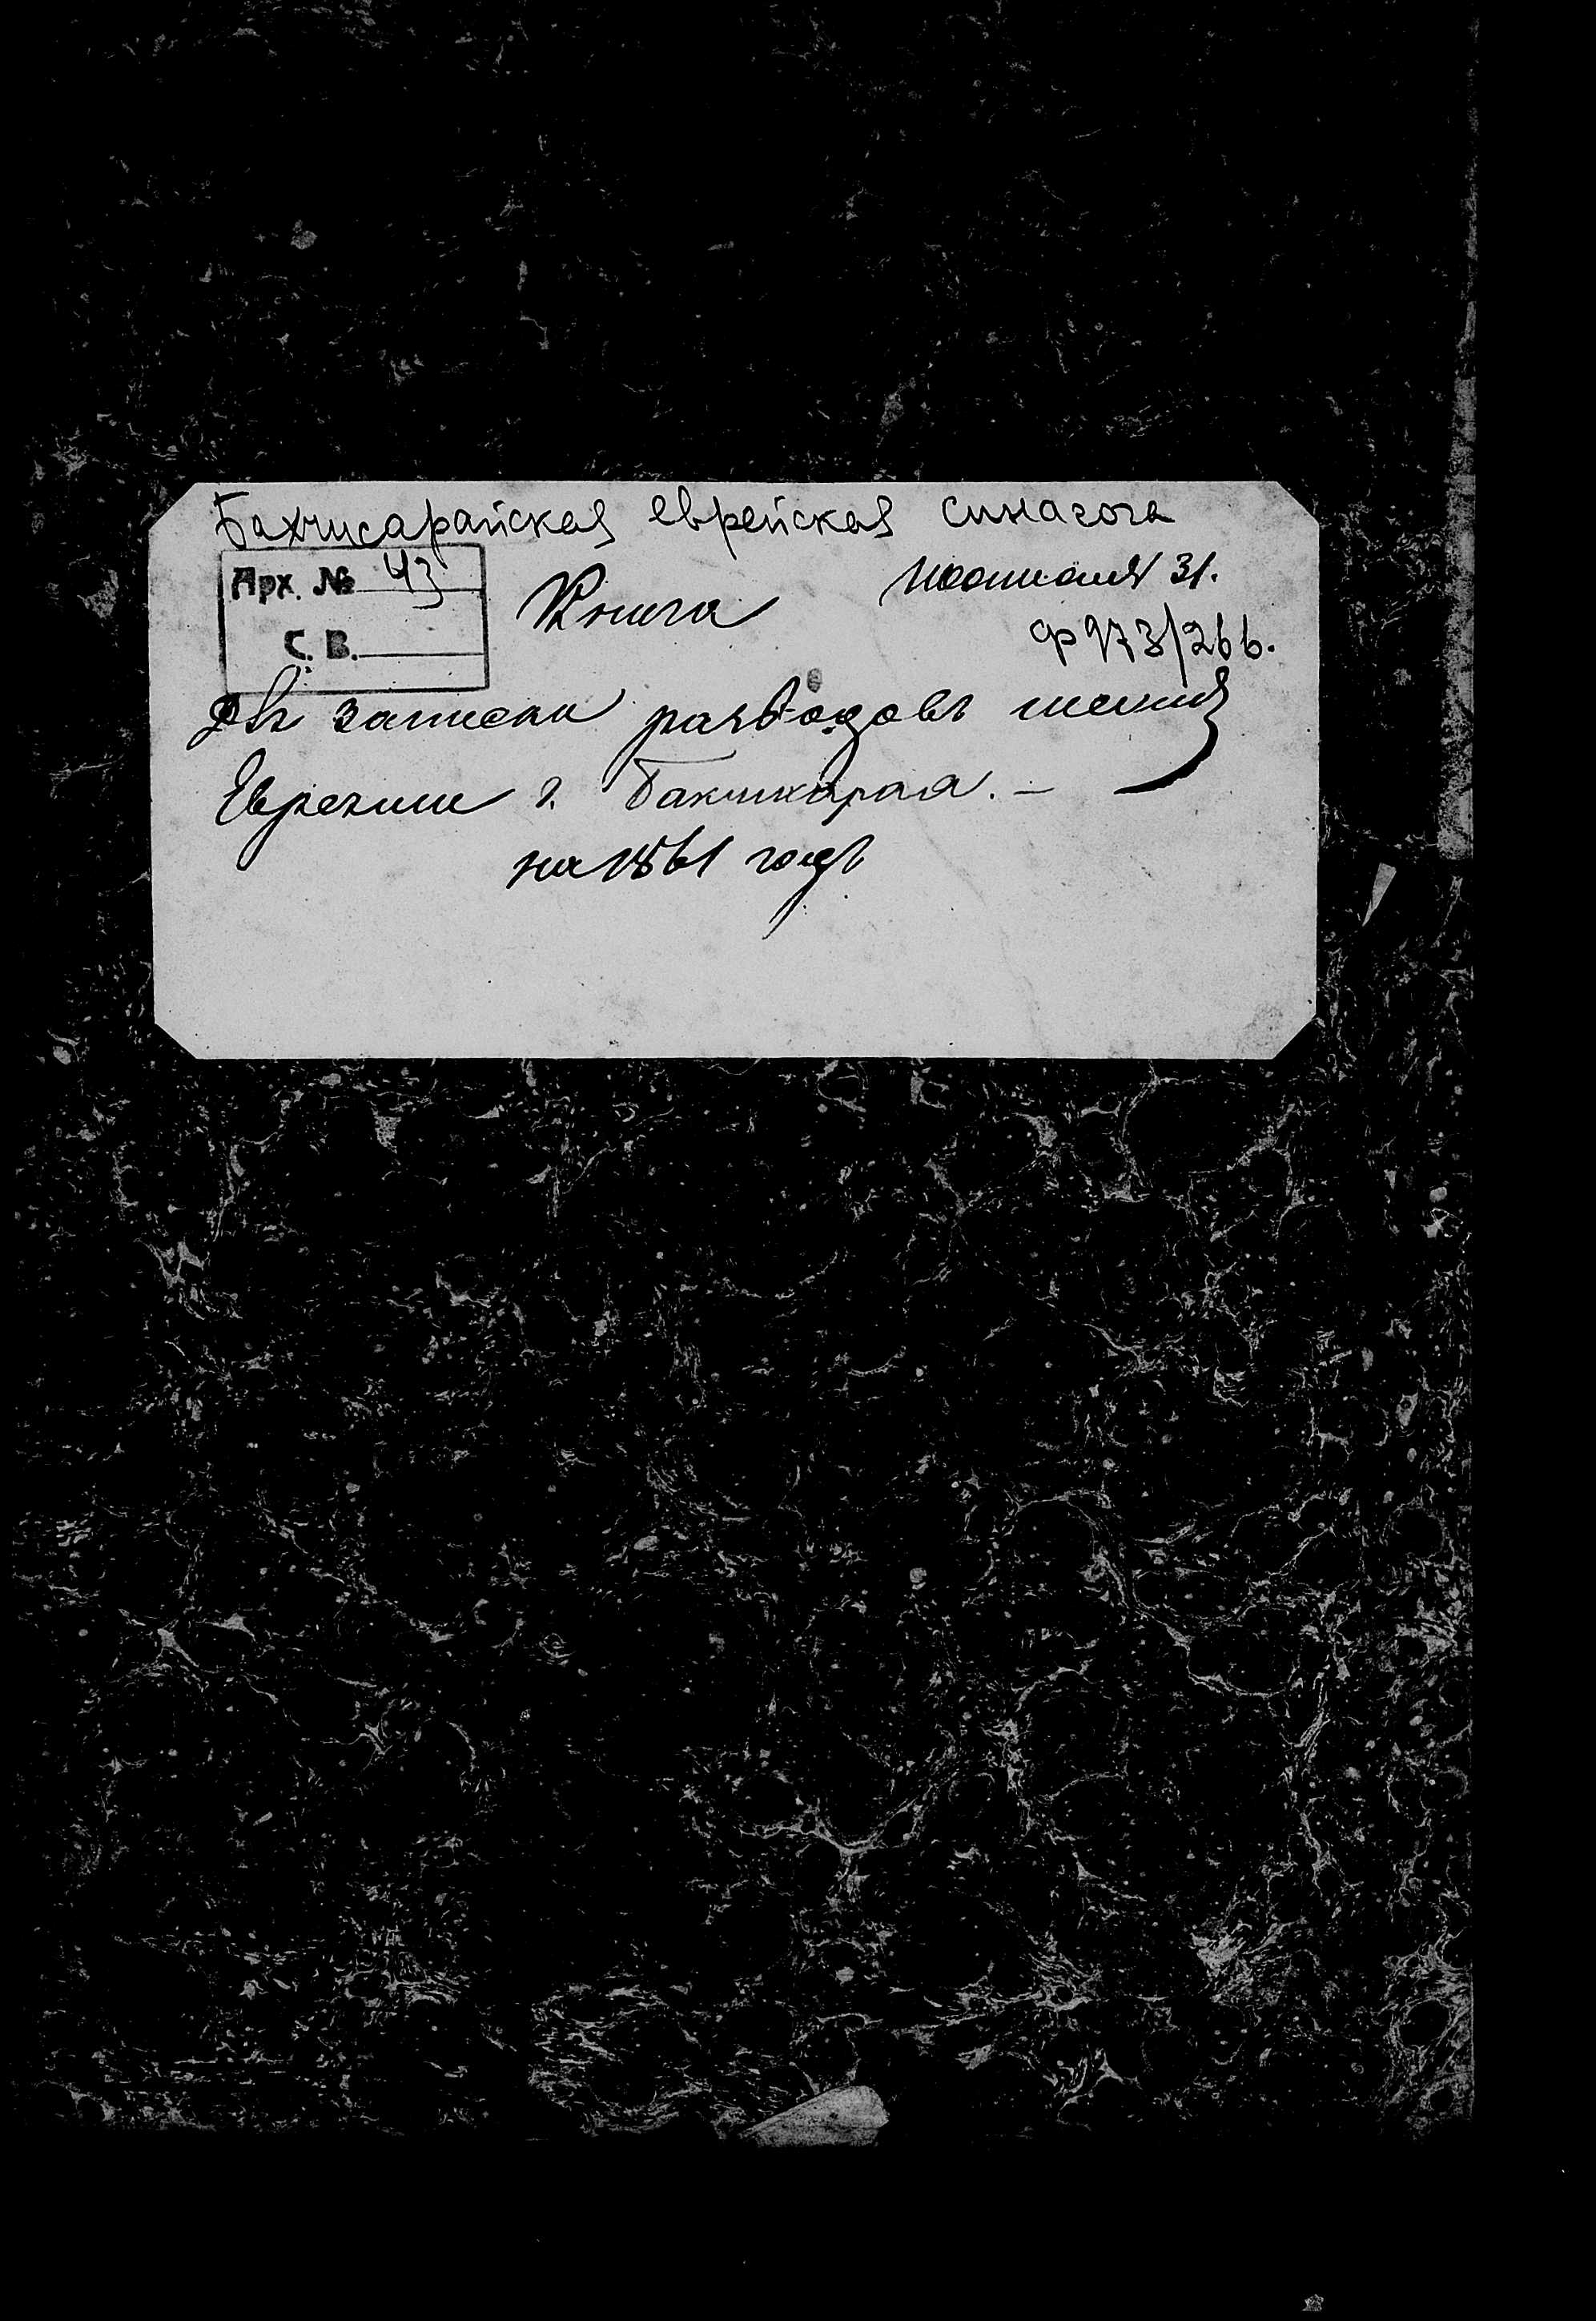 Бахчисарайская еврейская синагога
Арх. № 43
С. В.
Книга
31.
ф 973/266.
записки разводовъ между
Евреями г. Бахчисарая. –
на 1861 годъ